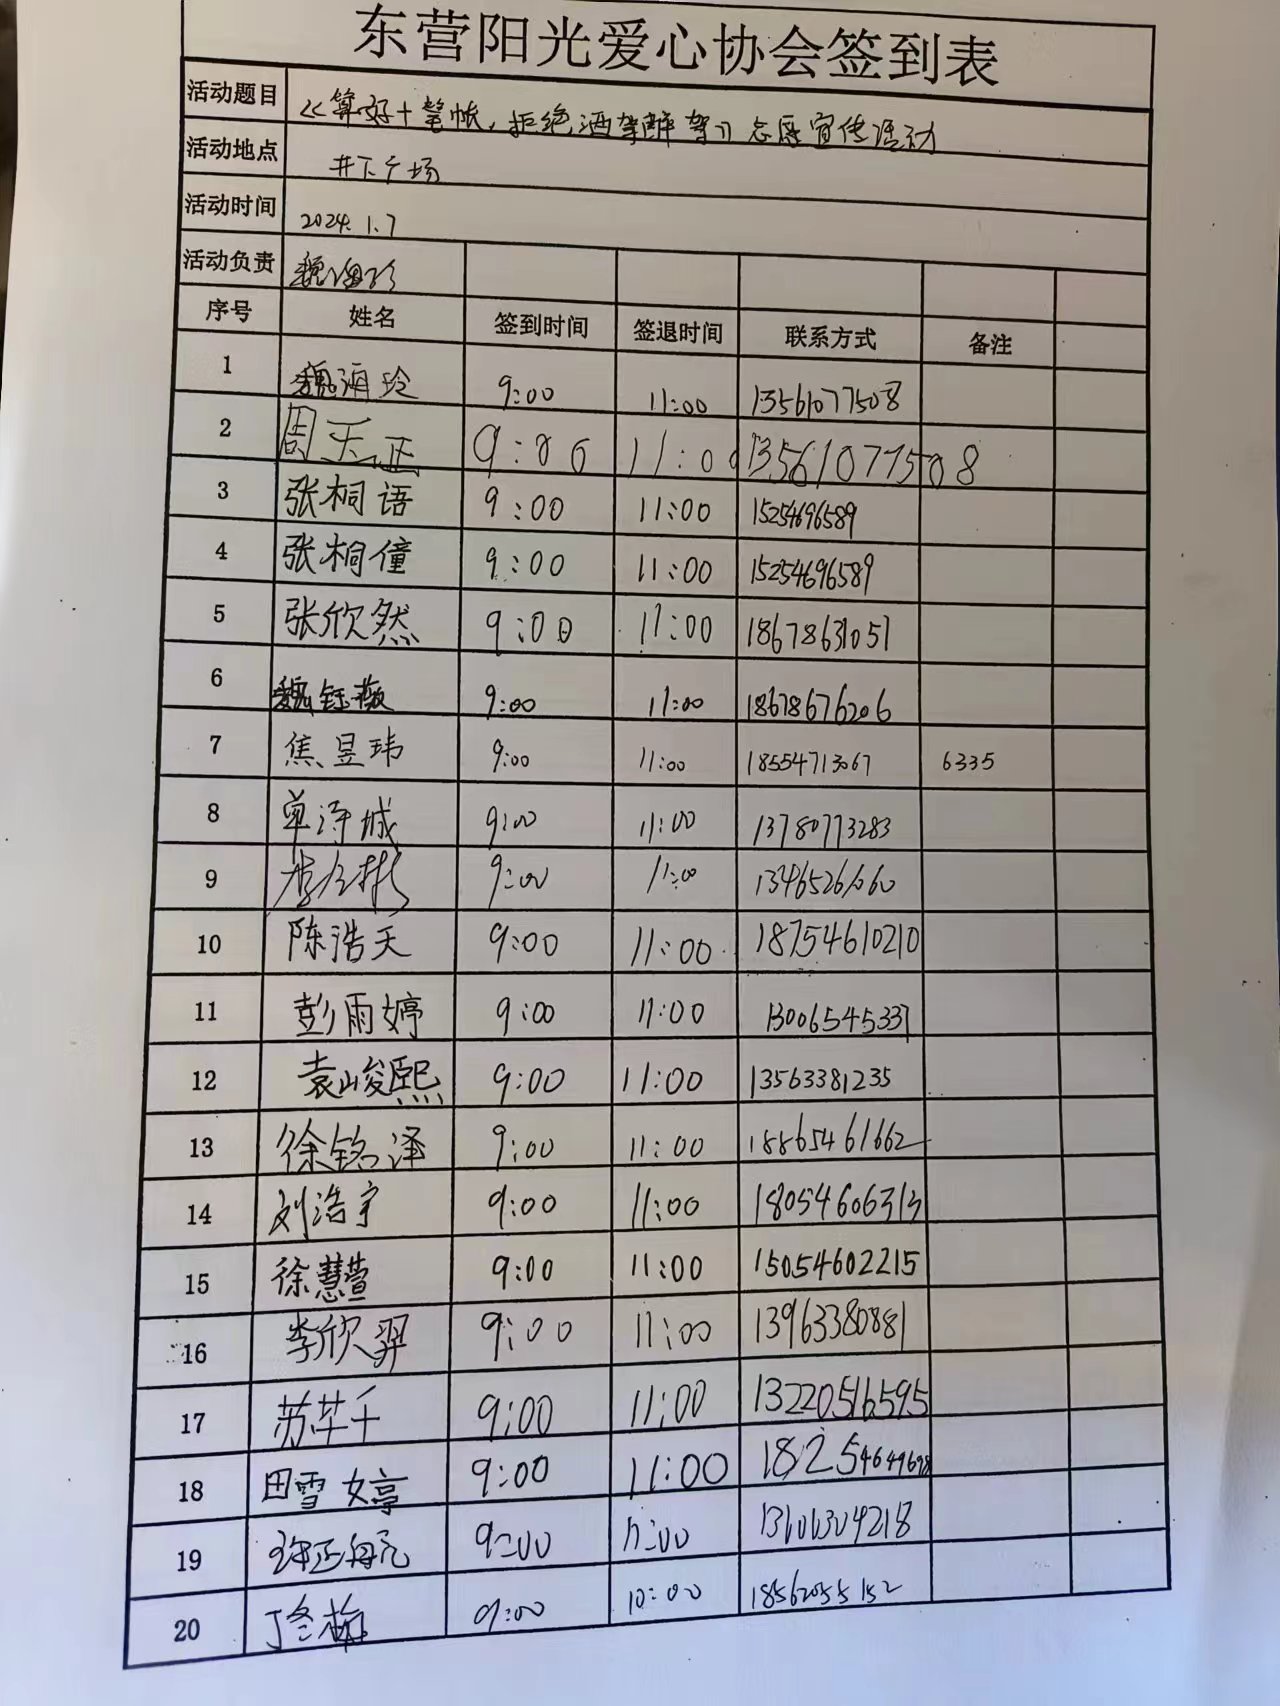 东营阳光爱心协会签到表
活动题目 《算好十笔帐，拒绝酒驾醉驾》志愿宣传活动
活动地点 井下广场
活动时间 2024.1.7
活动负责 魏海玲
序号 姓名 签到时间 签退时间 联系方式 备注
1 魏海玲 9:00 11:00 13561077508
2 周天正 9:00 11:00 13561077508
3 张桐语 9:00 11:00 15254696589
4 张桐僮 9:00 11:00 15254696589
5 张欣然 9:00 11:00 18678631051
6 魏钰薇 9:00 11:00 18678676206
7 焦昱玮 9:00 11:00 18554713067 6335
8 单泽城 9:00 11:00 13780773283
9 9:00 11:00
10 陈浩天 9:00 11:00 18754610210
11 彭雨婷 9:00 11:00 13006545337
12 袁峻熙 9:00 11:00 13563381235
13 徐铭泽 9:00 11:00 18865461662
14 刘浩宇 9:00 11:00 18054606313
15 徐慧萱 9:00 11:00 15054602215
16 李欣羿 9:00 11:00 13963380881
17 苏芊千 9:00 11:00 13220516595
18 田雪婷 9:00 11:00
19 9:00 11:00
20 丁冬梅 9:00 10:00 18562055152